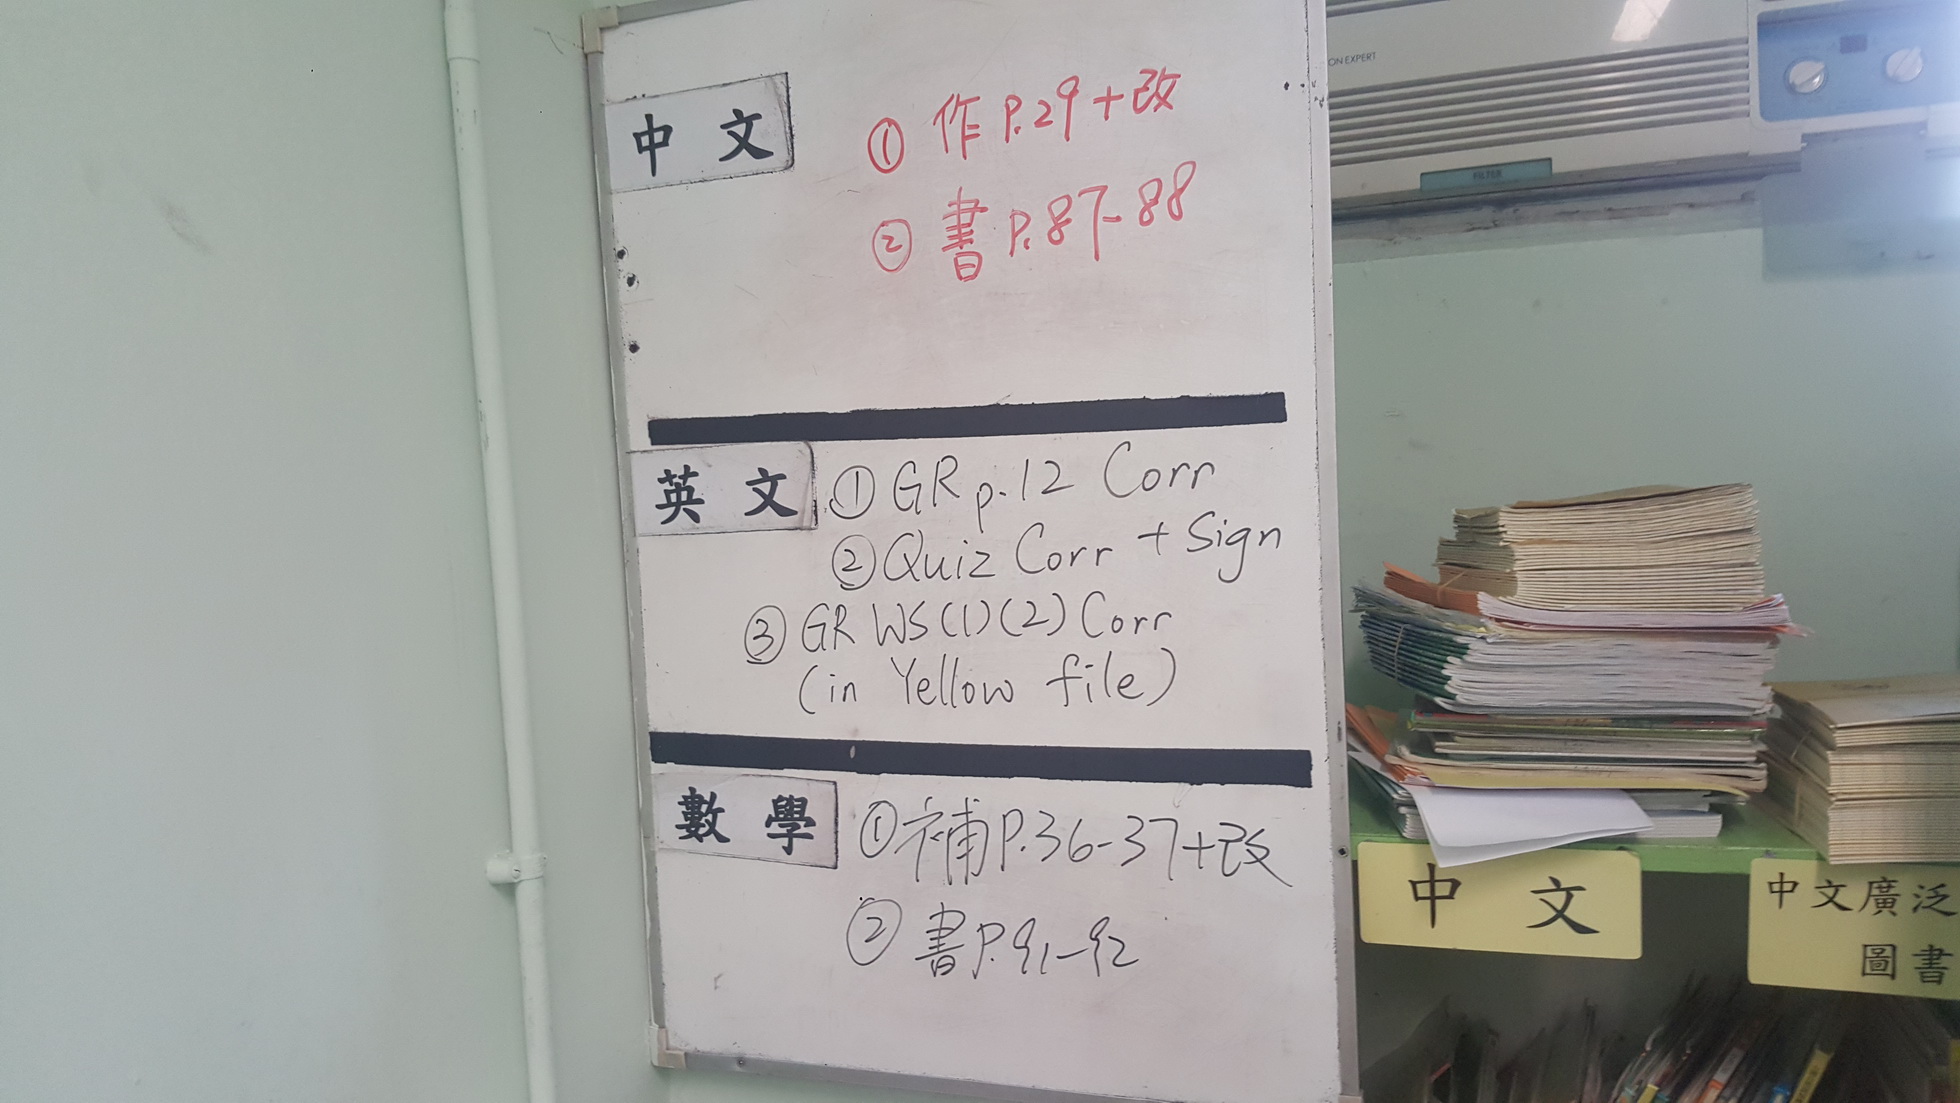 中文
① 作 P.29 + 改
② 書 P.87-88
英文
① GR p.12 Corr
② Quiz Corr + Sign
③ GR WS(1)(2) Corr
(in Yellow file)
數學
① 補 P.36-37 + 改
② 書 P.91-92
ON EXPERT
FILTER
中文
中文廣泛
圖書